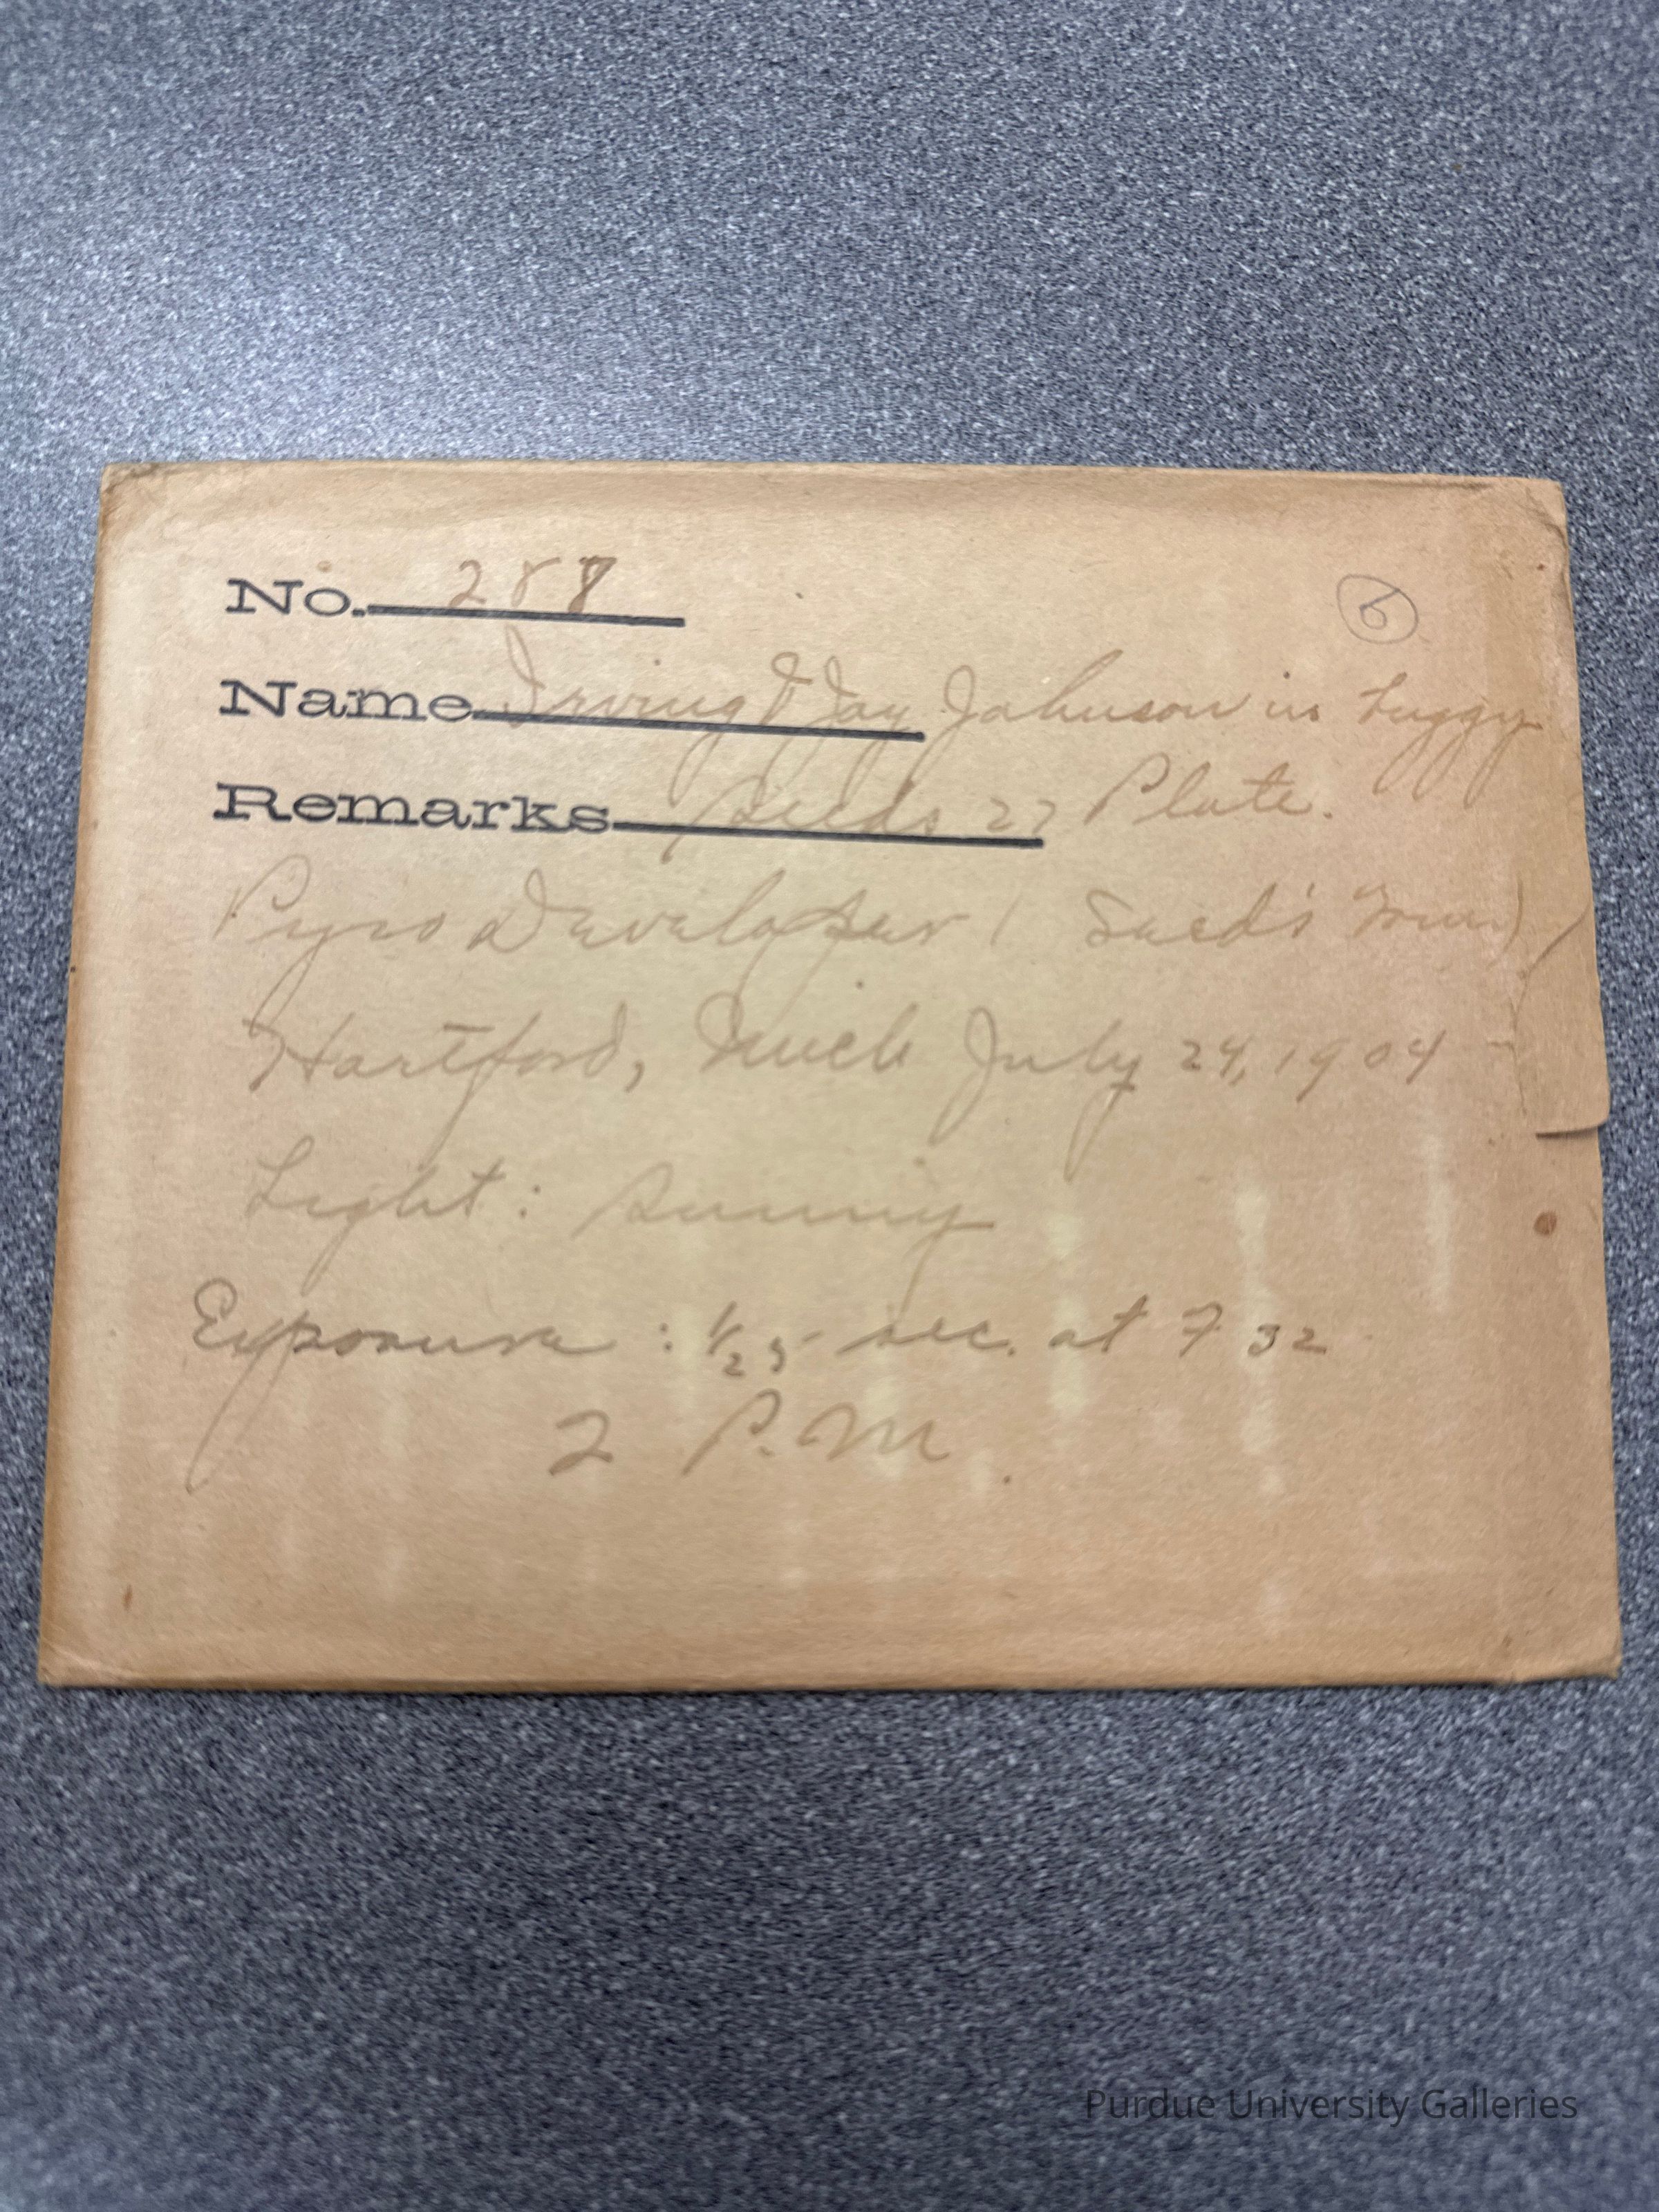 No. 287
6
Name Irving & Jay Johnson in buggy
Remarks Seeds 27 Plate.
Pyro Developer ( Seed's
Hartford, Mich July 24, 1904
Light: Sunny
Exposure: 1/25 sec. at F 32
2 P.M.
Purdue University Galleries